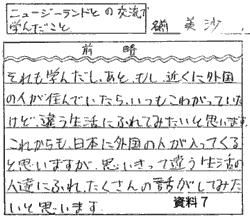 ニュージーランドとの交流で
学んだこと
嶺 美沙
前略
それも学んだし、あと、もし、近くに外国
の人が住んでいたら、いつもこわがっていた
けど、違う生活にふれてみたいと思います。
これからも、日本に外国の人が入ってくる
と思いますが、思いきって違う生活の
人達にふれ、たくさんの話がしてみた
いと思います。
資料7